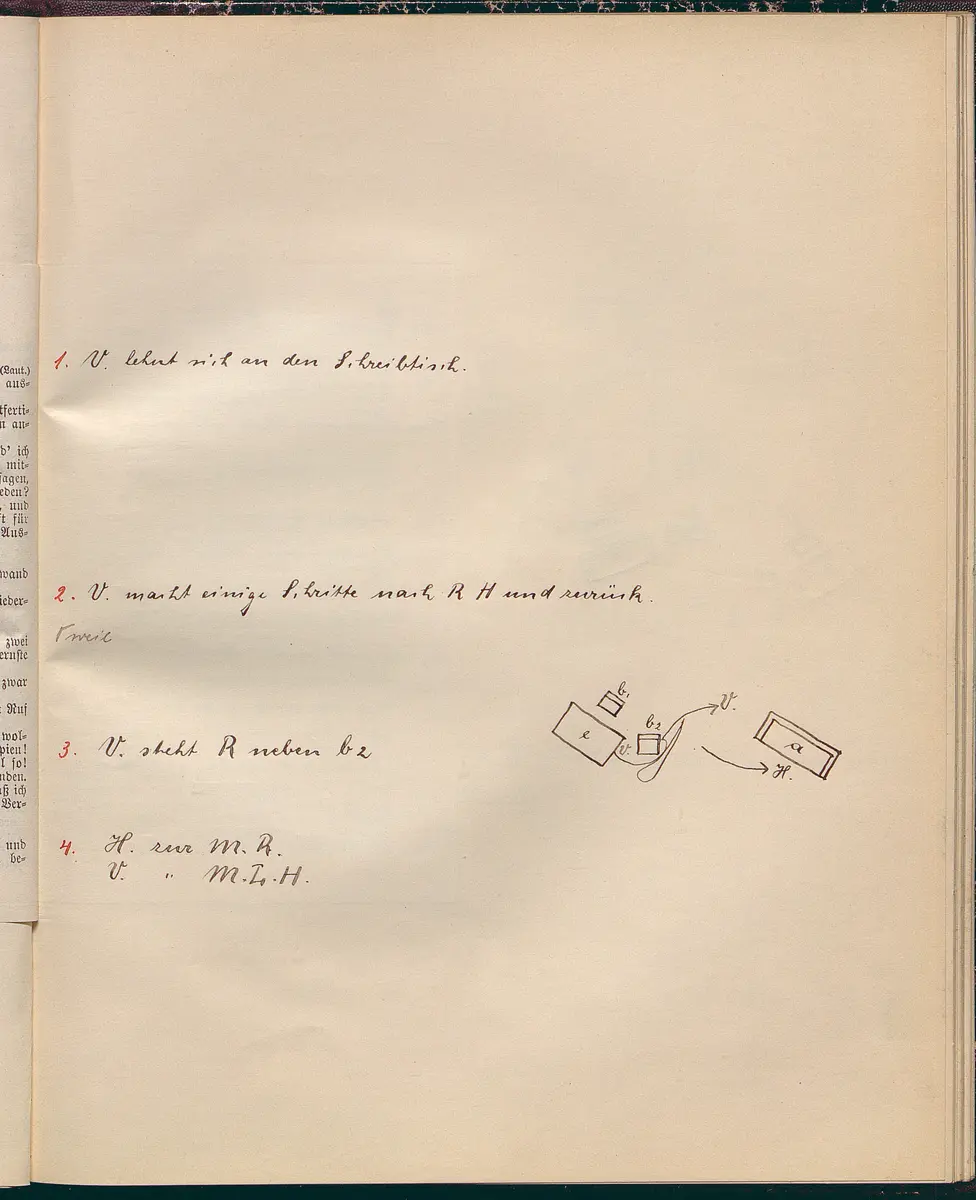 (Laut.)
aus-
tferti-
n an-
d' ich
mit-
sagen,
eden?
, und
t für
Aus-
wand
ieder-
zwei
ernste
zwar
Ruf
wol-
pien!
l so!
nden.
ß ich
Ver-
und
be-
1. V. lehnt sich an den Schreibtisch.
2. V. macht einige Schritte nach R H und zurück.
weil
3. V. steht R neben b2
b1
e
b2
V.
V.
a
H.
4. H. zur M. R.
V. " M. L. H.